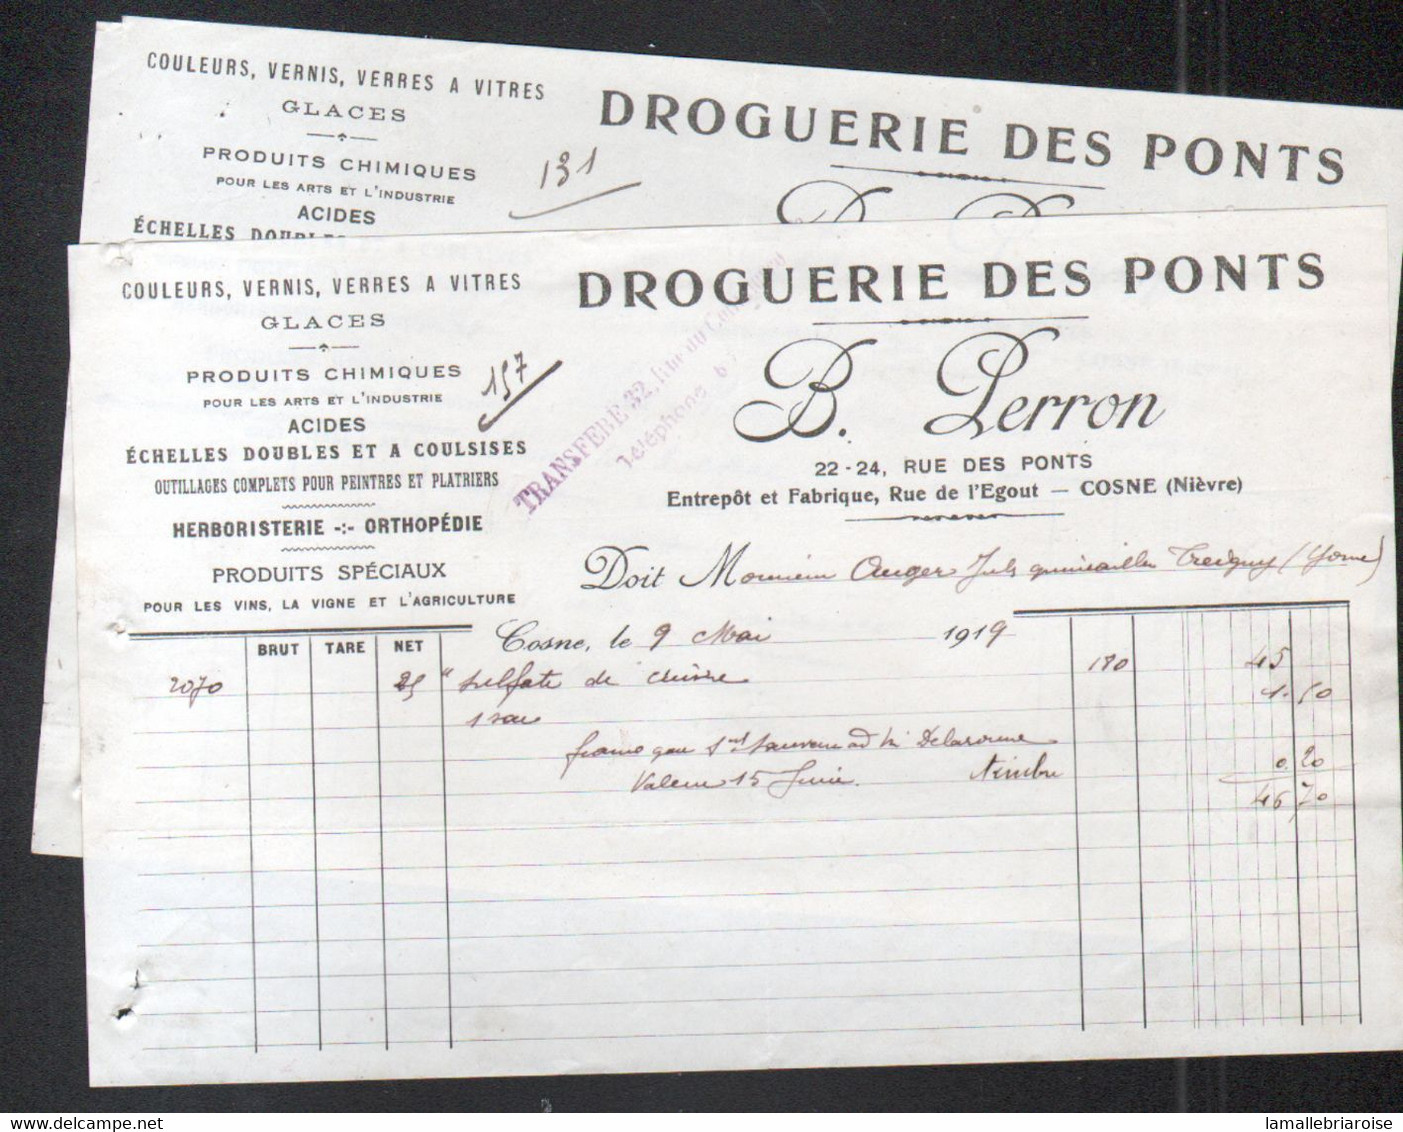 COULEURS, VERNIS, VERRES A VITRES
GLACES
PRODUITS CHIMIQUES
POUR LES ARTS ET L'INDUSTRIE
ACIDES
ÉCHELLES DOUBLES
131
DROGUERIE DES PONTS
COULEURS, VERNIS, VERRES A VITRES
GLACES
PRODUITS CHIMIQUES
POUR LES ARTS ET L'INDUSTRIE
ACIDES
ÉCHELLES DOUBLES ET A COULSISES
OUTILLAGES COMPLETS POUR PEINTRES ET PLATRIERS
HERBORISTERIE -:- ORTHOPÉDIE
PRODUITS SPÉCIAUX
POUR LES VINS, LA VIGNE ET L'AGRICULTURE
157
TRANSFÉRÉ 32, Rue du
Téléphone 6
DROGUERIE DES PONTS
B. Perron
22-24, RUE DES PONTS
Entrepôt et Fabrique, Rue de l'Egout — COSNE (Nièvre)
Doit Monsieur Auger Jules quincailler Treigny (Yonne)
Cosne, le 9 Mai 1919
BRUT TARE NET
2070 25 " sulfate de cuivre 180 45
1 sac 1.50
Delasonne
Valeur 15 Juin. timbre 0 20
46 70
www.delcampe.net
lamallebriaroise